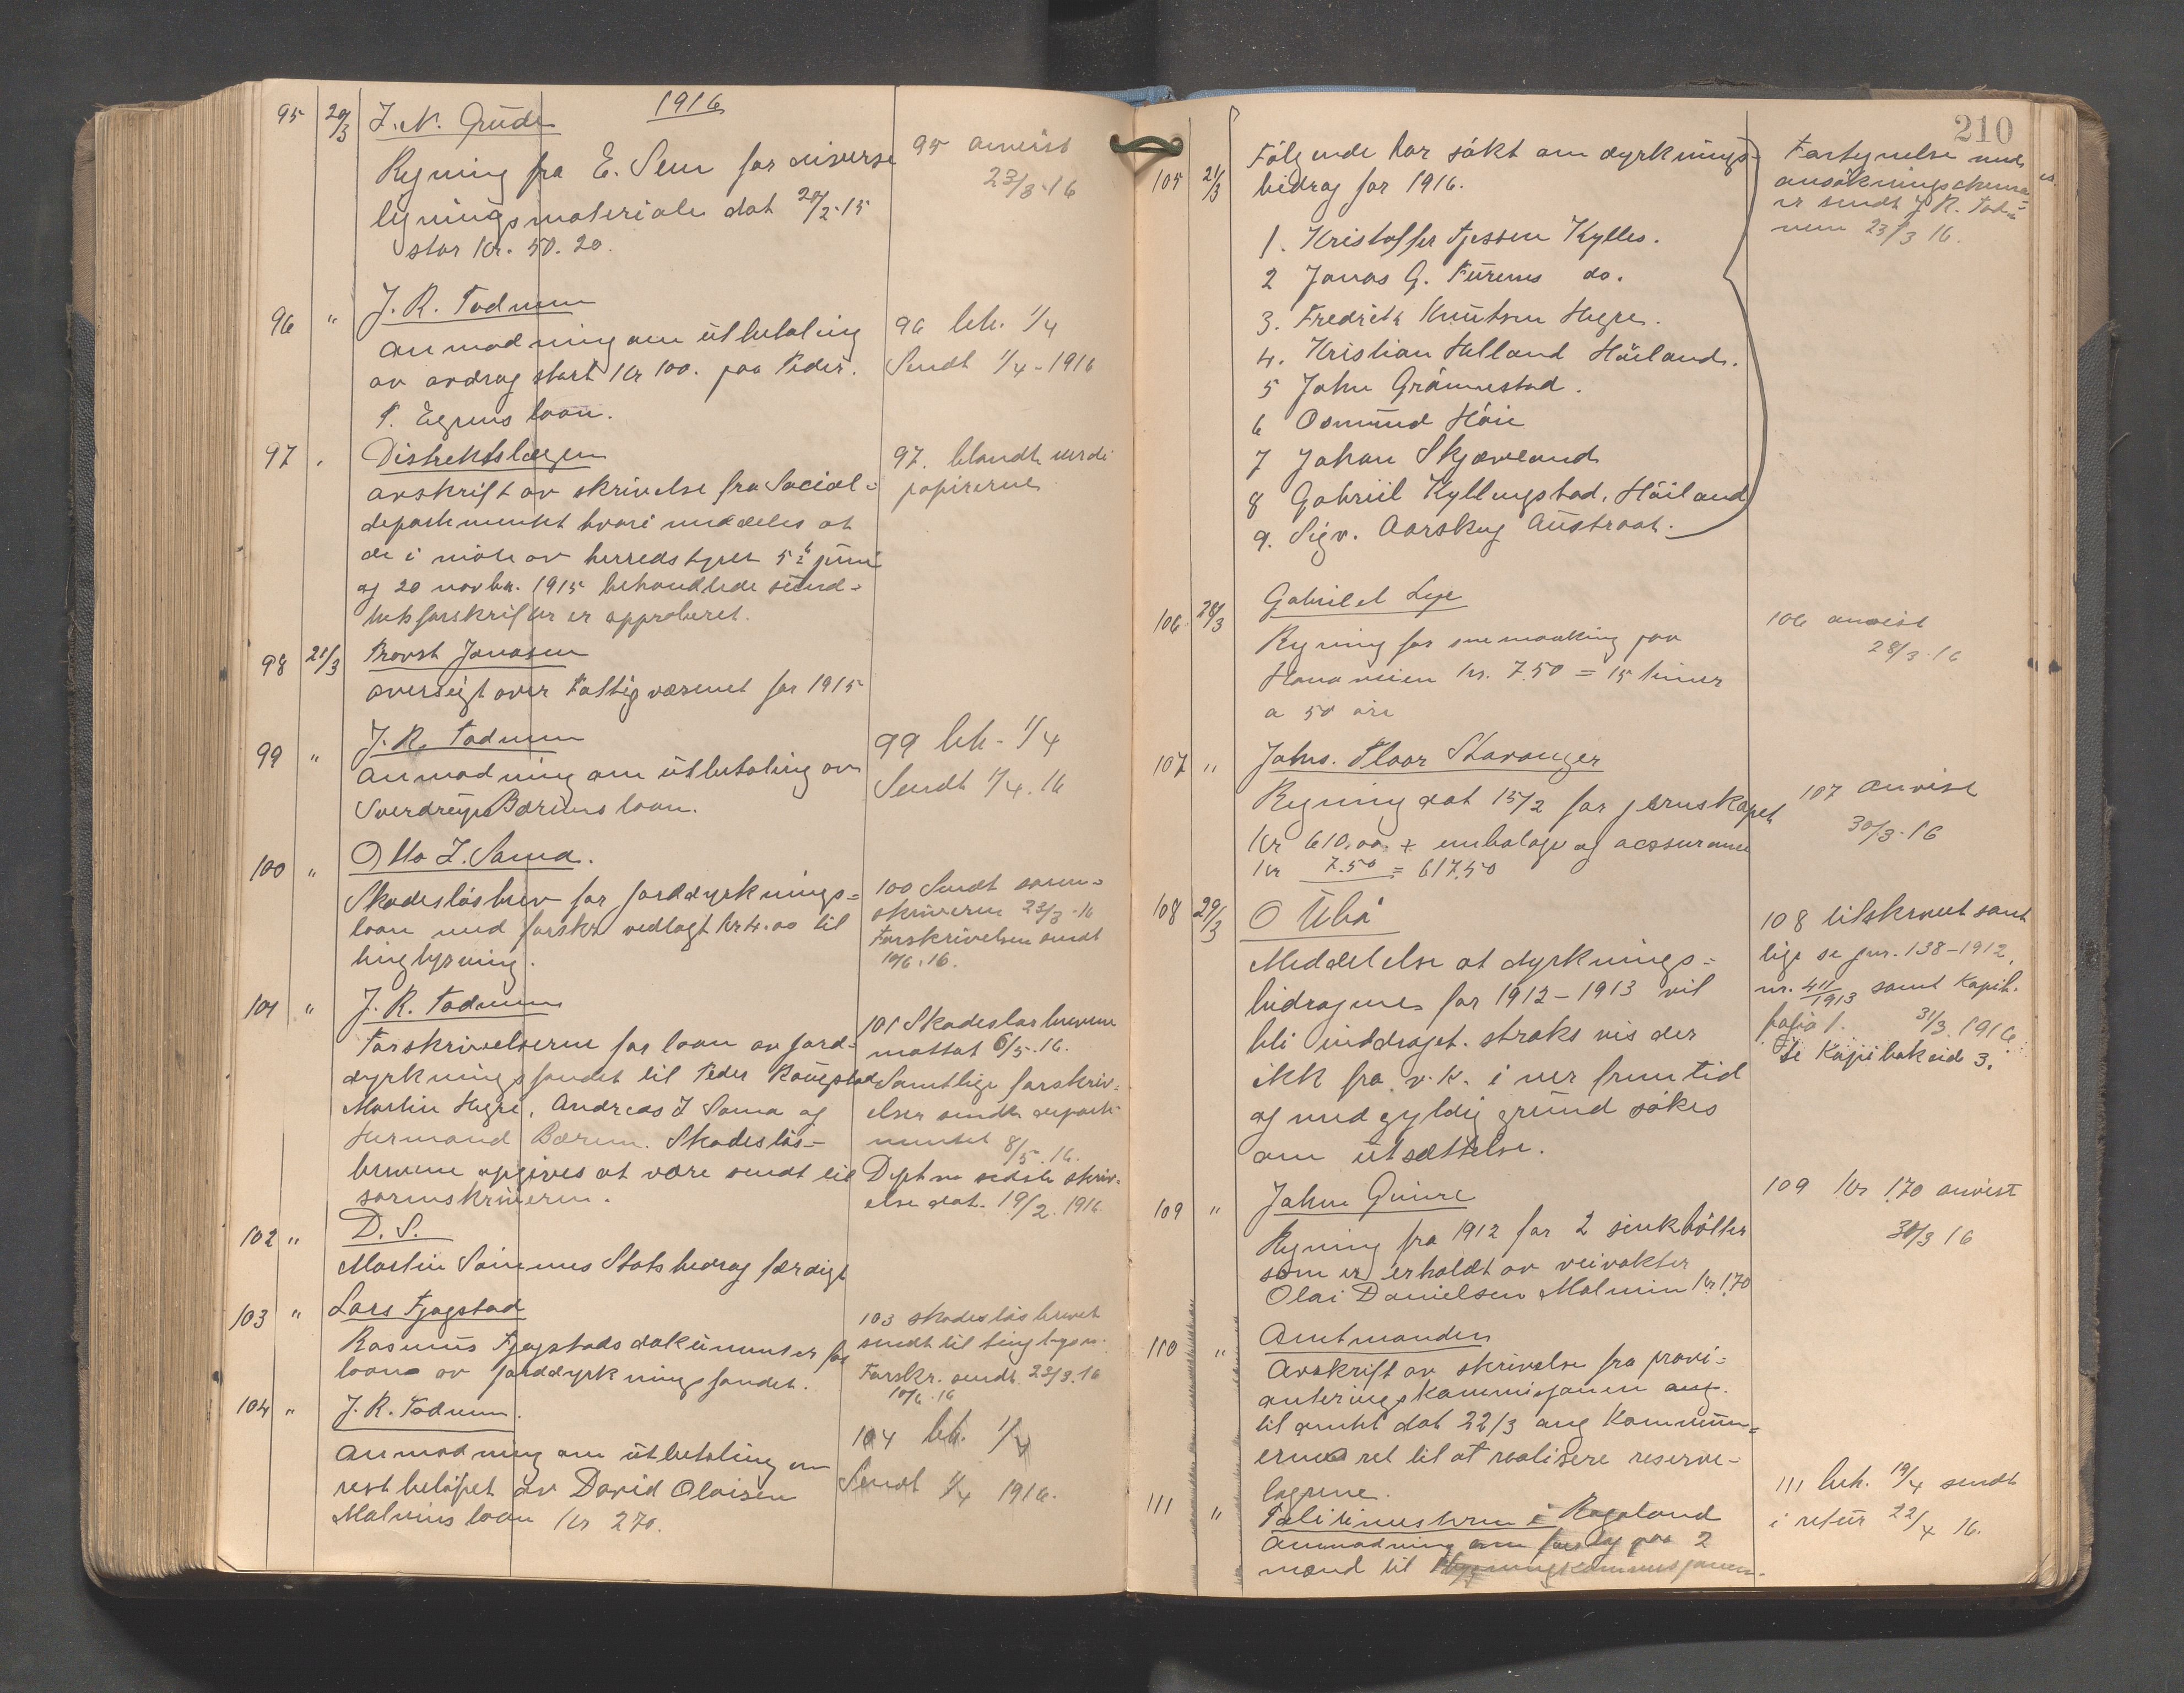 1916
95 20/3 J. N. Grude
Regning fra E. Sem for diverse
ligningsmateriale dat 20/2-15
stor Kr. 50.20.
95 anvist
23/3-16
96 " J. R. Todnem
Anmodning om utbetaling
av avdrag stort Kr 100. paa Peder.
T. Egenes laan.
96 beh. 1/4
Sendt 1/4-1916
97 " Distriktslægen
avskrift av skrivelse fra Social-
departementet hvori meddeles at
de i möte av herredstyret 5te juni
og 20 novbr. 1915 behandlede sund-
hetsforskrifter er approberet.
97. blandt verdi
papirerne
98 21/3 Provst Jonassen
oversigt over Fattigvæsenet for 1915
99 " J. R. Todnem
Anmodning om utbetaling av
Sverdrup Bærems laan.
99 beh. 1/4
Sendt 1/4.16
100 " Otto I. Soma.
Skadeslösbrev for jorddyrknings-
laan med forskr. vedlagt kr 4.00 til
tinglysning.
100 Sendt soren-
skriveren 23/3-16
Forskrivelsen sendt
10/6.16.
101 " J. R. Todnem
Forskrivelserne for laan av jord-
dyrkningsfondet til Peder
Martin Hegre, Andreas I Soma og
Hermand Bærem. Skadeslös-
brevene opgives at være sendt til
sorenskriveren.
101 Skadeslösbrevene
mottat 6/5.16.
Samtlige forskriv-
elser sendt departe-
mentet 8/5.16.
Dept.
else dat. 19/2. 1916
102 " D. S.
Martin Statsbidrag færdigt
103 " Lars Fjogstad
Rasmus Fjogstads dokumenter for
laan av jorddyrkningsfondet.
103 skadeslösbrevet
sendt til tinglysn.
Forskr. sendt 23/3.16
10/6.16
104 " J. R. Todnem.
Anmodning om utbetaling av
restbelöpet av David Olaisen
Malmins laan Kr 270.
104 beh. 1/4
Sendt 1/4 1916.
210
105 21/3 Fölgende har sökt om dyrknings-
bidrag for 1916.
1. Kristoffer Tjessem Kylles.
2 Jonas G. Furenes do.
3. Fredrik Knutsen Hegre.
4. Kristian Helland Höiland.
5 John Grönnestad.
6 Osmund Höie
7 Johan Skjæveland
8 Gabriel Kyllingstad, Höiland
9. Sigv. Aarskog Austraat.
Fortegnelse med
ansökningschema
er sendt J. R. Tod-
nem 23/3 16.
106 28/3 Gabriel Lye
Regning for snemaaking paa
Hanaveien kr. 7.50 = 15 timer
a 50 öre
106 anvist
28/3-16
107 " Johs. Floor Stavanger
Regning dat 15/2 for jernskapet
Kr 610.00 + embalage og acssurance
Kr 7.50 = 617.50
107 anvist
30/3-16
108 29/3 O Uebö
Meddelelse at dyrknings-
bidragene for 1912-1913 vil
bli inddraget straks vis der
ikk fra v.k. i nær fremtid
og med gyldig grund sökes
om utsættelse.
108 tilskrevet samt
lige se jnr. 138-1912,
nr. 411/1913 samt Kopib.
31/3.1916
Se Kopibok side 3.
109 " John Gimre
Regning fra 1912 for 2 sinkbötter
som er erholdt av veivokter
Olai Danielsen Malmin kr 1,70
109 Kr 1.70 anvist
30/3 16
110 " Amtmanden
Avskrift av skrivelse fra provi-
anteringskommisjonen ang.
til amtet dat 22/3 ang Kommun-
ernes ret til at realisere reserve-
lagrene.
111 " Politimesteren i Rogaland
Anmodning om forslag paa 2
mænd til
111 beh. 19/4 sendt
i retur 22/4 16.